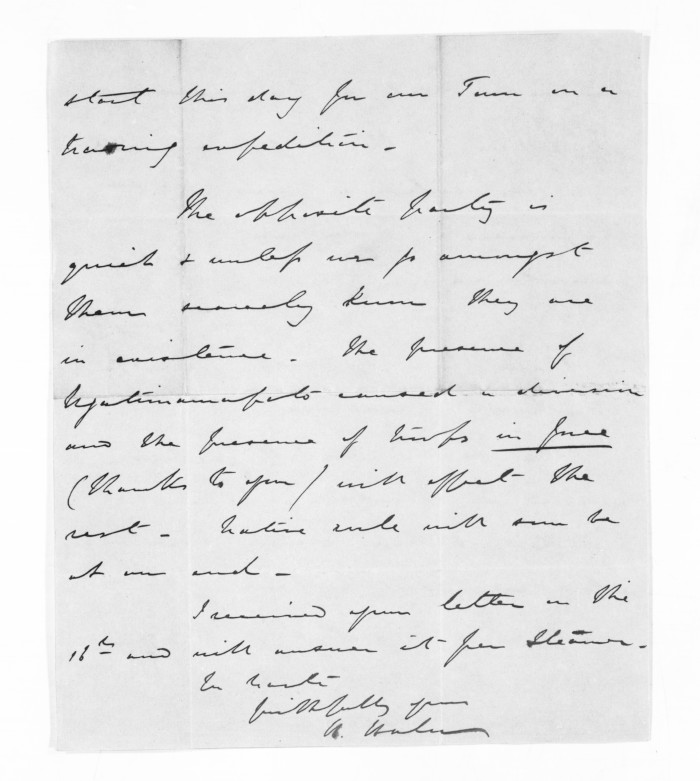 start this day for our Town on a
training expedition -
The opposite party is
quiet & unless we go amongst
them scarcely know they are
in existence - The presence of
caused a diversion
and the presence of troops in force
(thanks to you) will effect the
rest - Native rule will soon be
at an end -
I received your letter on the
16th and will answer it per Steamer -
In haste
faithfully yours